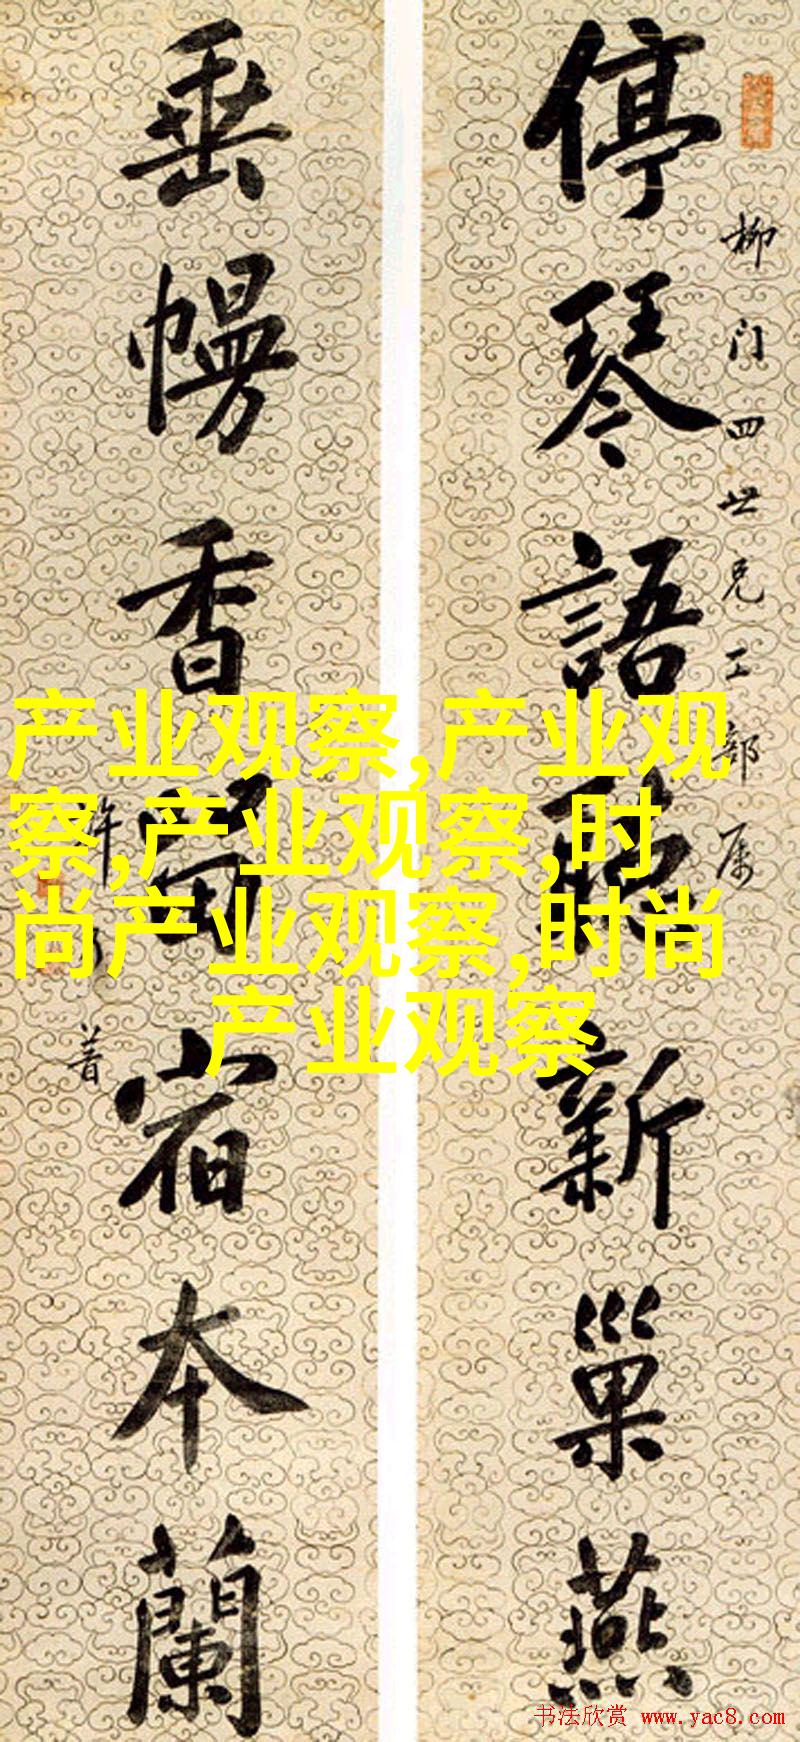 停琴語聽新巢燕
柳门四世兄工部属
垂幔香留宿本蘭
许乃普
产业观察,产业观
察,产业观察,时
尚产业观察,时尚
产业观察
书法欣赏 www.yac8.com